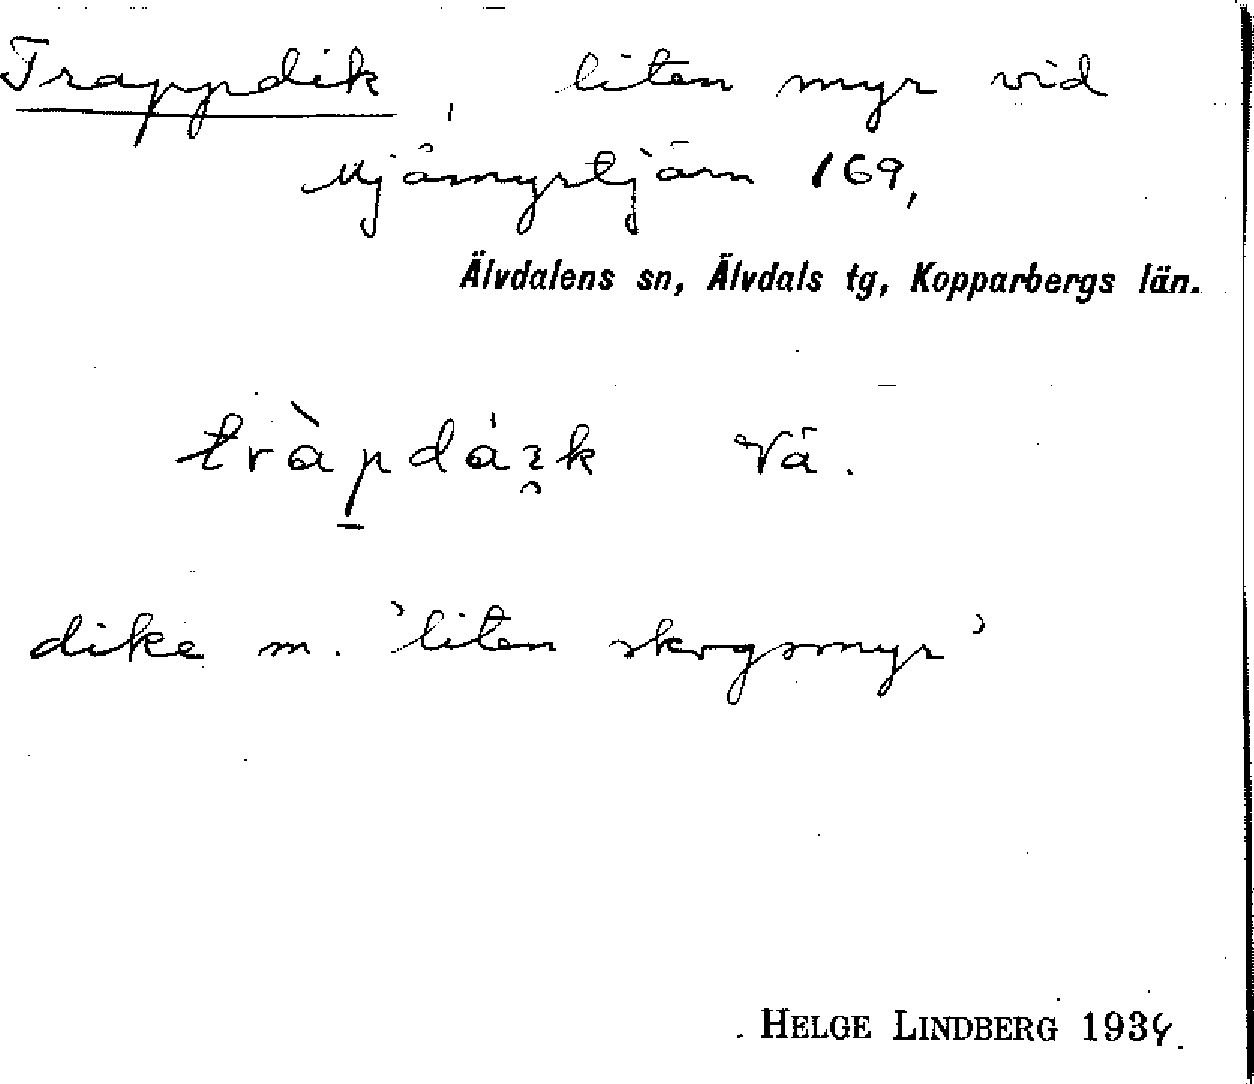 Trappdik, liten myr vid
Mjåmyrtjärn 169,
Älvdalens sn, Älvdals tg, Kopparbergs län.
Vä.
dike m. 'liten skogsmyr'
HELGE LINDBERG 1934